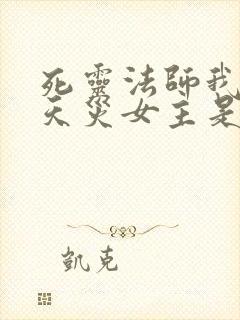 死靈法師我
天災女主是
凱克